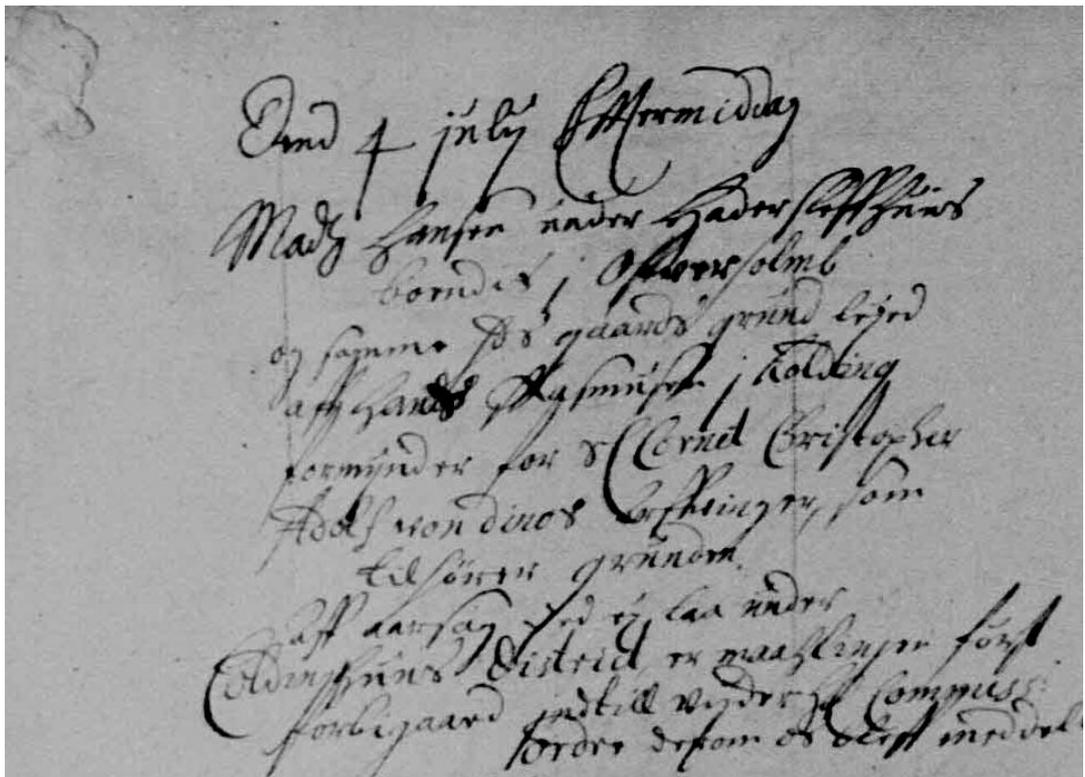 Dend 4 july Efftermiddag
Madz Hansen under Hadersleffhuus
boendis i Øfverholmb
og samme gaards grund lejed
aff Hans Rasmusen i Kolding
formynder for Sl Cornet Christopher
Adolf von dinos arffvinger, som
tilhører grunden.
aff aarsag ded ej laa under
Coldinghuus District er maalingen først
forbigaard indtill vijder h: Commiss:
ordre desom os bleff meddelt